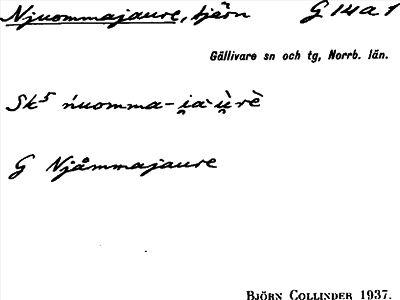 Njuommajaure, tjärn G 14 a 1
Gällivare sn och tg, Norrb. län.
Sk⁵ ńuomma-i̯a·ù̯rè
G Njåmmajaure
BJÖRN COLLINDER 1937.